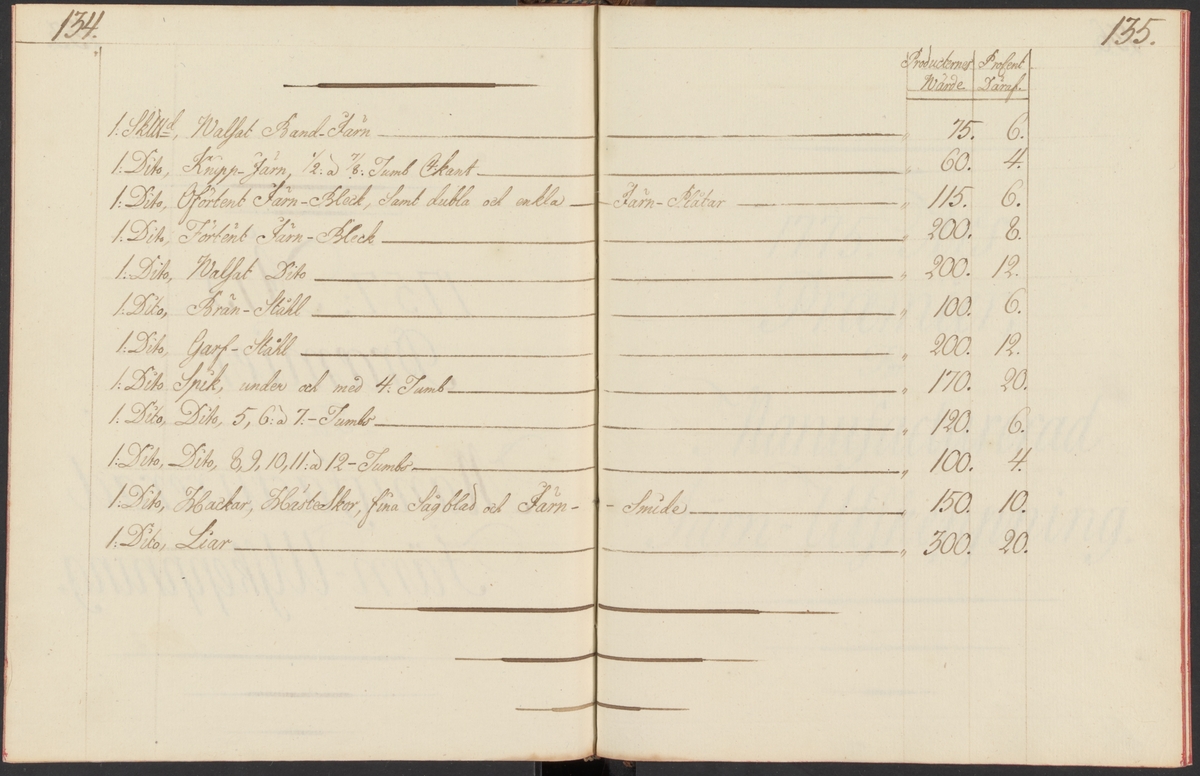 134.
135.
Producternes Wärde
Prosent Däraf.
1: Sklltt, Walsat Band-Järn 75. 6.
1: Dito, Knipp-Järn, 1/2: à 7/8: Tumb 4kant 60. 4.
1: Dito, Oförtent Järn-Bleck, Samt dubla och enkla Järn-Plåtar 115. 6.
1: Dito, Förtent Järn-Bleck 200. 8.
1: Dito, Walsat Dito 200. 12.
1: Dito, Brän-Ståhl 100. 6.
1: Dito, Garf-Ståhl 200. 12.
1: Dito Spik, under och med 4: Tumb 170. 20.
1: Dito, Dito, 5, 6: à 7:- Tumbs 120. 6.
1: Dito, Dito, 8, 9, 10, 11: à 12- Tumbs 100. 4.
1: Dito, Hackar, HästeSkor, fina Sågblad och Järn-Smide 150. 10.
1: Dito, Liar 300. 20.